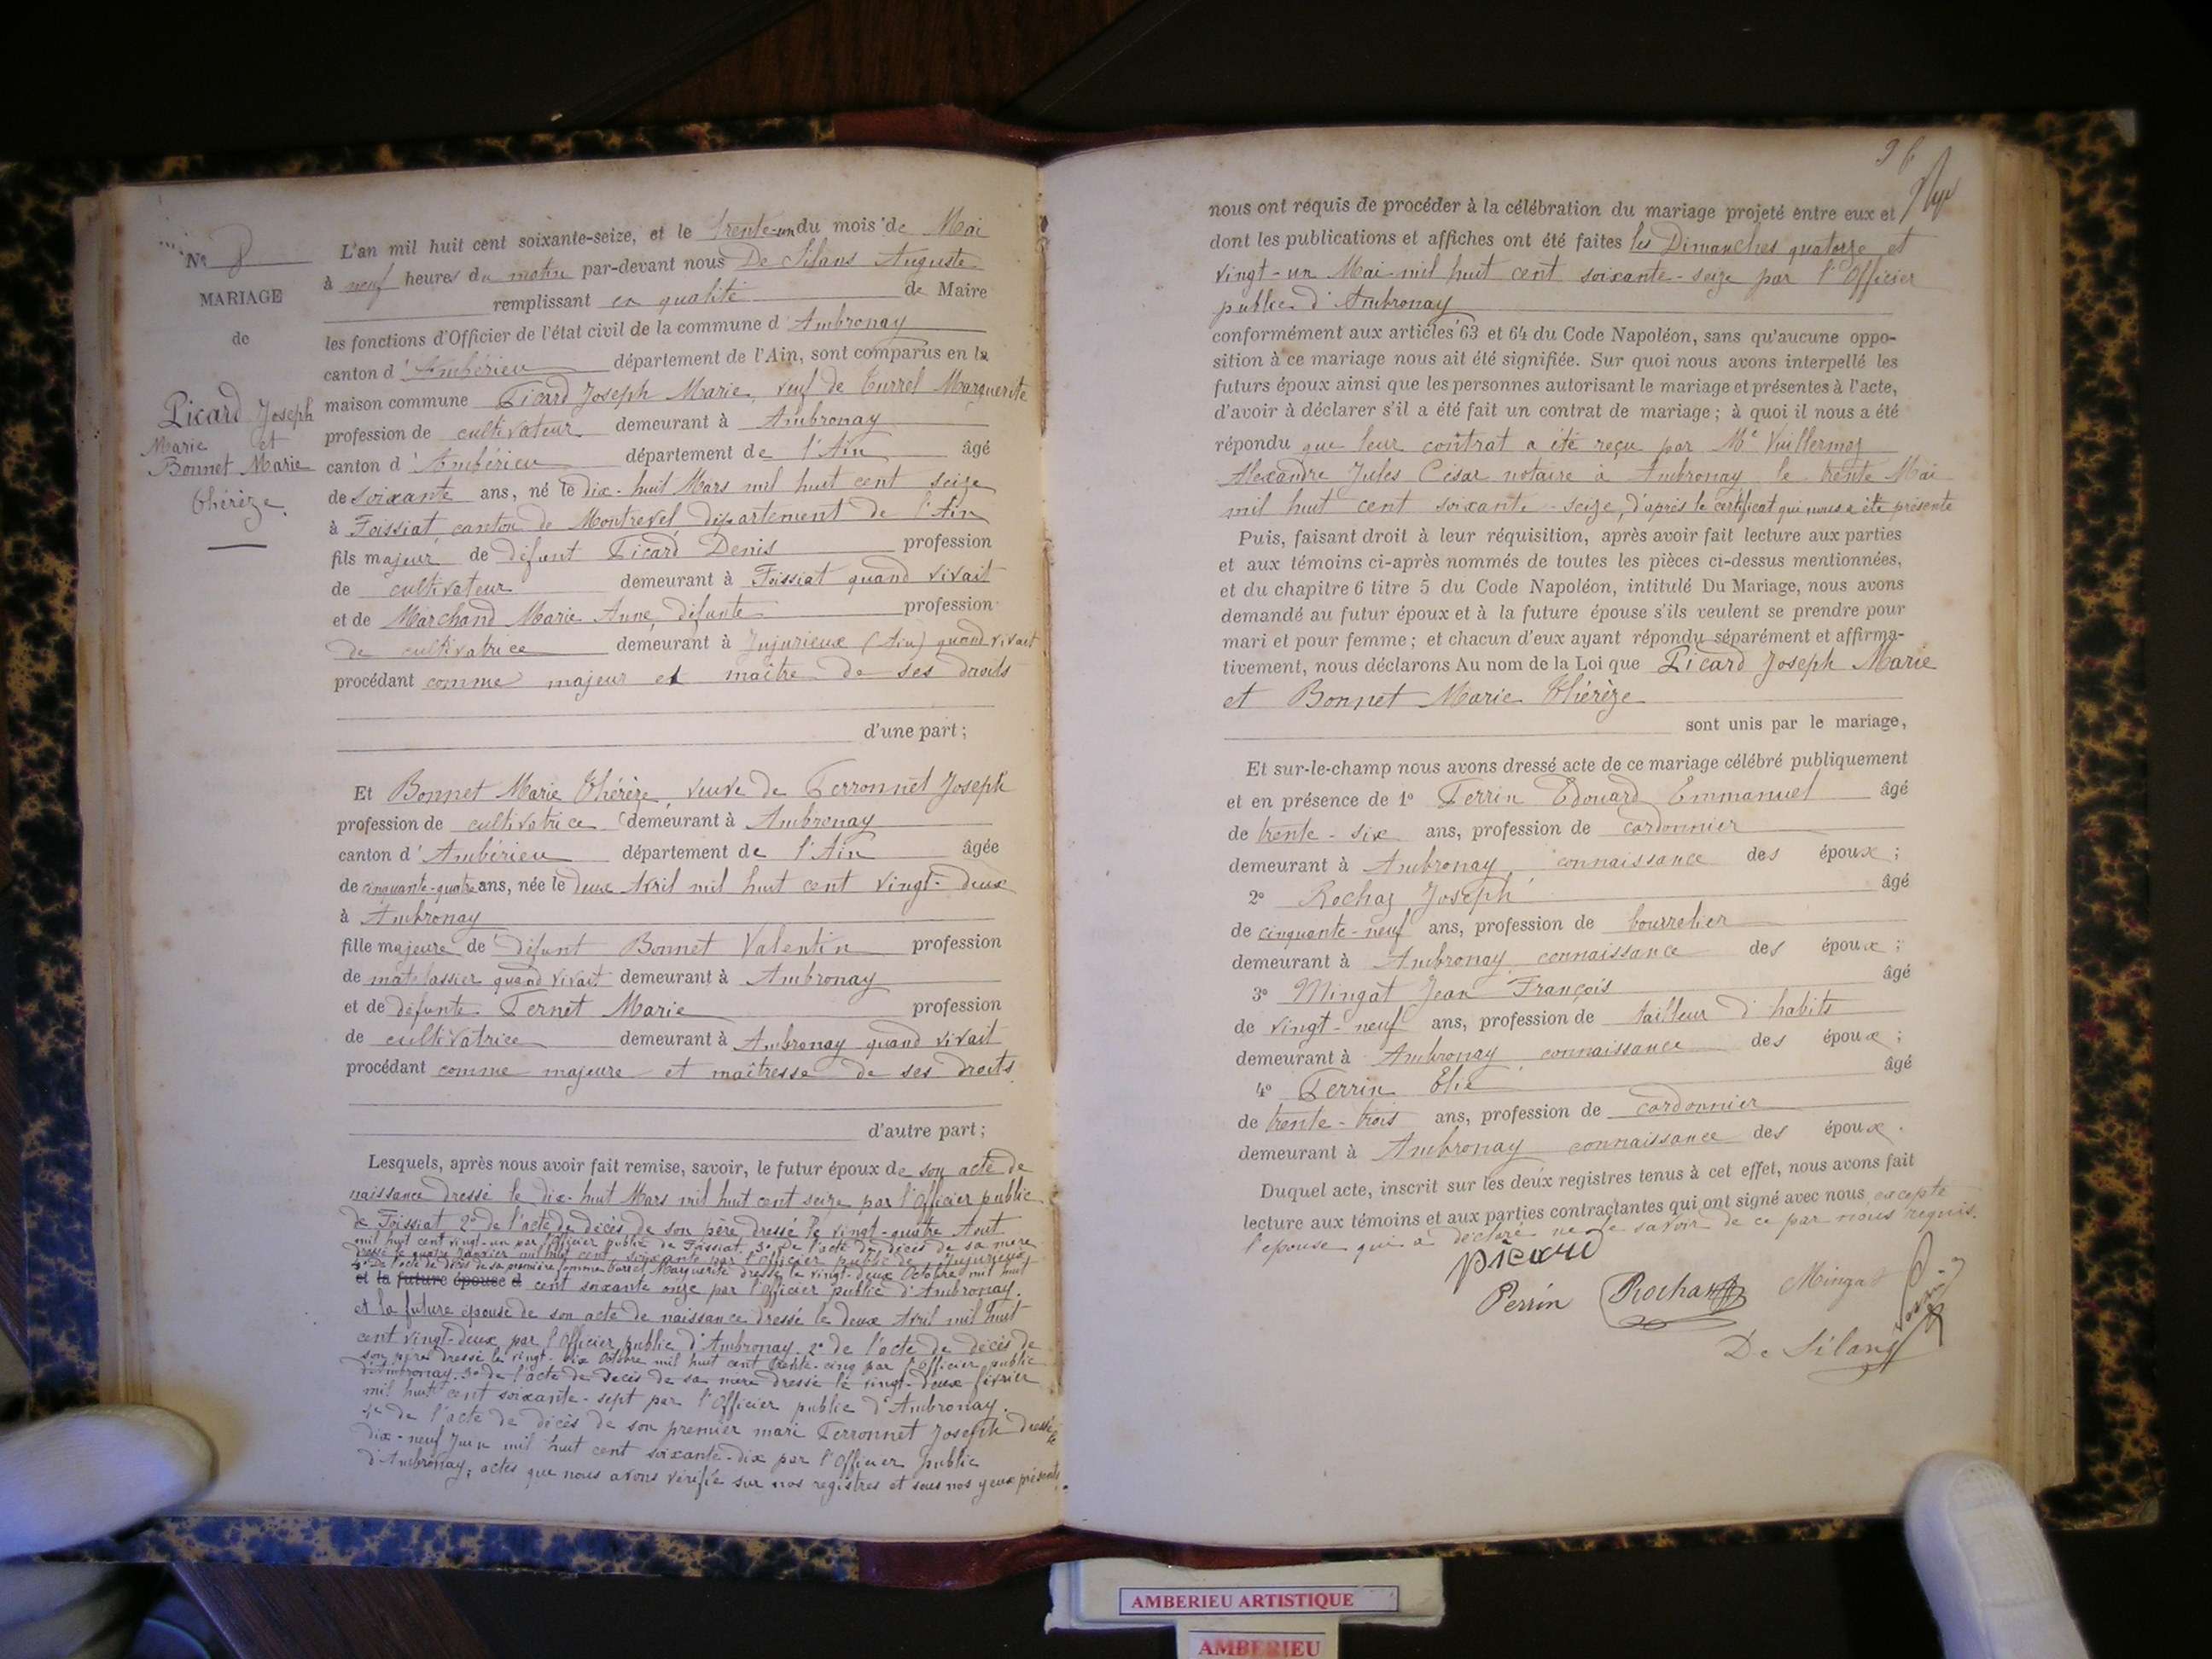 Nº 8
MARIAGE
de
Picard Joseph
Marie et
Bonnet Marie
Thérèze.
L'an mil huit cent soixante-seize, et le trente-un du mois de Mai
à neuf heures du matin par-devant nous De Silans Auguste
remplissant en qualité de Maire
les fonctions d'Officier de l'état civil de la commune d'Ambronay
canton d'Ambérieu département de l'Ain, sont comparus en la
maison commune Picard Joseph Marie, veuf de Turrel Marguerite
profession de cultivateur demeurant à Ambronay
canton d'Ambérieu département de l'Ain âgé
de soixante ans, né le dix-huit Mars mil huit cent seize
à Foissiat, canton de Montrevel département de l'Ain
fils majeur de défunt Picard Denis profession
de cultivateur demeurant à Foissiat quand vivait
et de Marchand Marie Anne, défunte profession
de cultivatrice demeurant à Jujurieux (Ain) quand vivait
procédant comme majeur et maître de ses droits
d'une part ;
Et Bonnet Marie Thérèze, veuve de Perronnet Joseph
profession de cultivatrice demeurant à Ambronay
canton d'Ambérieu département de l'Ain âgée
de cinquante-quatre ans, née le deux Avril mil huit cent vingt-deux
à Ambronay
fille majeure de défunt Bonnet Valentin profession
de matelassier quand vivait demeurant à Ambronay
et de défunte Pernet Marie profession
de cultivatrice demeurant à Ambronay quand vivait
procédant comme majeure et maîtresse de ses droits
d'autre part ;
Lesquels, après nous avoir fait remise, savoir, le futur époux de son acte de
naissance dressé le dix-huit Mars mil huit cent seize par l'Officier public
de Foissiat, 2º de l'acte de décès de son père dressé le vingt-quatre Aout
mil huit cent vingt-un par l'Officier public de Foissiat, 3º De l'acte de décès de sa mère
dressé le quatre Janvier mil huit cent soixante par l'Officier public de Jujurieux
4º De l'acte de décès de sa première femme Turrel Marguerite dressé le vingt-deux Octobre mil huit
et la future épouse d cent soixante onze par l'Officier public d'Ambronay.
et la future épouse de son acte de naissance dressé le deux Avril mil huit
cent vingt-deux par l'Officier public d'Ambronay. 2º de l'acte de décès de
son père dressé le vingt-six Octobre mil huit cent trente-cinq par l'Officier public
d'Ambronay. 3º de l'acte de décès de sa mère dressé le vingt-deux février
mil huit cent soixante-sept par l'Officier public d'Ambronay.
4º de l'acte de décès de son premier mari Perronnet Joseph dressé le
dix-neuf Juin mil huit cent soixante-dix par l'Officier public
d'Ambronay; actes que nous avons vérifié sur nos registres et sous nos yeux présents.
96
nous ont requis de procéder à la célébration du mariage projeté entre eux et
dont les publications et affiches ont été faites les Dimanches quatorze et
vingt-un Mai mil huit cent soixante-seize par l'Officier
public d'Ambronay
conformément aux articles 63 et 64 du Code Napoléon, sans qu'aucune oppo-
sition à ce mariage nous ait été signifiée. Sur quoi nous avons interpellé les
futurs époux ainsi que les personnes autorisant le mariage et présentes à l'acte,
d'avoir à déclarer s'il a été fait un contrat de mariage ; à quoi il nous a été
répondu que leur contrat a été reçu par Me Vuillermoz
Alexandre Jules César notaire à Ambronay le trente Mai
mil huit cent soixante-seize, d'après le certificat qui nous a été présenté
Puis, faisant droit à leur réquisition, après avoir fait lecture aux parties
et aux témoins ci-après nommés de toutes les pièces ci-dessus mentionnées,
et du chapitre 6 titre 5 du Code Napoléon, intitulé Du Mariage, nous avons
demandé au futur époux et à la future épouse s'ils veulent se prendre pour
mari et pour femme ; et chacun d'eux ayant répondu séparément et affirma-
tivement, nous déclarons Au nom de la Loi que Picard Joseph Marie
et Bonnet Marie Thérèze
sont unis par le mariage,
Et sur-le-champ nous avons dressé acte de ce mariage célébré publiquement
et en présence de 1º Perrin Edouard Emmanuel âgé
de trente-six ans, profession de cordonnier
demeurant à Ambronay connaissance des époux ;
2º Rochaz Joseph âgé
de cinquante-neuf ans, profession de bourrelier
demeurant à Ambronay connaissance des époux ;
3º Mingat Jean François âgé
de vingt-neuf ans, profession de tailleur d'habits
demeurant à Ambronay connaissance des époux ;
4º Perrin Elie âgé
de trente-trois ans, profession de cordonnier
demeurant à Ambronay connaissance des époux.
Duquel acte, inscrit sur les deux registres tenus à cet effet, nous avons fait
lecture aux témoins et aux parties contractantes qui ont signé avec nous excepté
l'épouse qui a déclaré ne le savoir de ce par nous requis.
Picard
Perrin Rochaz Mingat
De Silans
AMBERIEU ARTISTIQUE
AMBERIEU